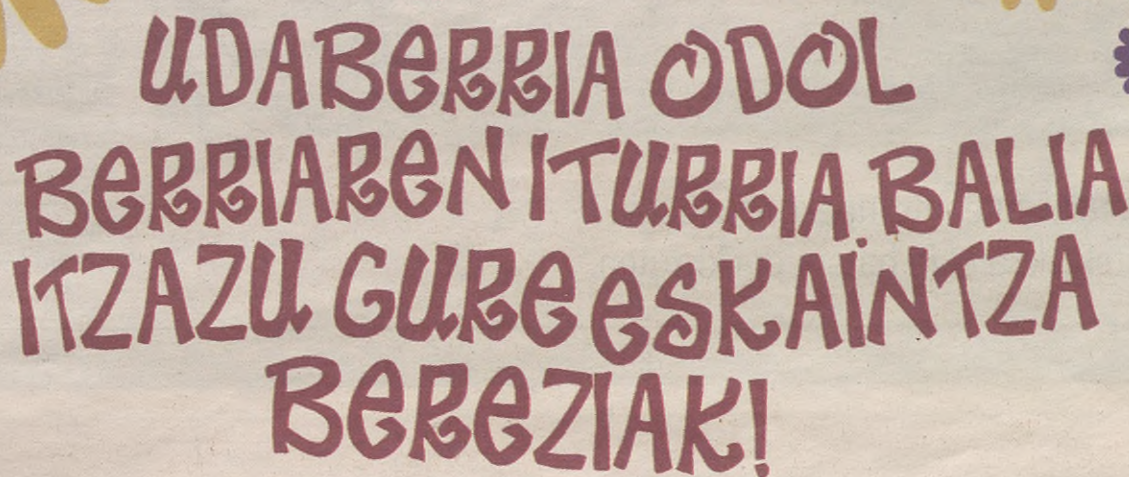 UDABERRIA ODOL
BERRIAREN ITURRIA. BALIA
ITZAZU GURE ESKAINTZA
BEREZIAK!